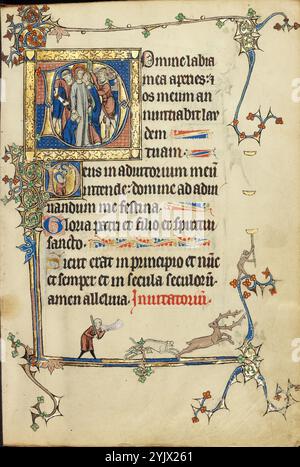 Domine labia
mea aperies: &
os meum an
nunciabit lau
dem
tuam.
Deus in adiutorium meū
intende: domine ad adiu
uandum me festina.
Gloria patri et filio et spiritui
sancto.
Sicut erat in principio et nūc
et semper et in secula seculorū
amen alleluia. Inuitatorium.
alamy
www.alamy.com
Image ID: 2YJX261